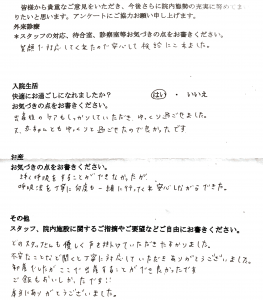 皆様から貴重なご意見をいただき、今後さらに院内施設の充実に努めてま
りたいと思います。アンケートにご協力お願い申し上げます。
外来診療
＊スタッフの対応、待合室、診察室等お気づきの点をお書きください。
笑顔で対応してくれたので安心して検診にこれました。
入院生活
快適にお過ごしになれましたか？ はい ・ いいえ
お気づきの点をお書きください。
出産後のケアもしっかりしていただき、ゆっくり過ごせました。
ゆっくり過ごせたので良かったです
お産
お気づきの点をお書きください。
上手く呼吸をすることができなかったが、
呼吸法を丁寧に何度も一緒に行ってくれ安心しながらできた。
その他
スタッフ、院内施設に関するご指摘やご要望などご自由にお書きください。
どのスタッフさんも優しく声を掛けていただきたすかりました。
不安なことなど聞くと丁寧に対応していただきありがとうございました。
ここで出産することができ良かったです
ご飯もおいしかったです!!
本当にありがとうございました。